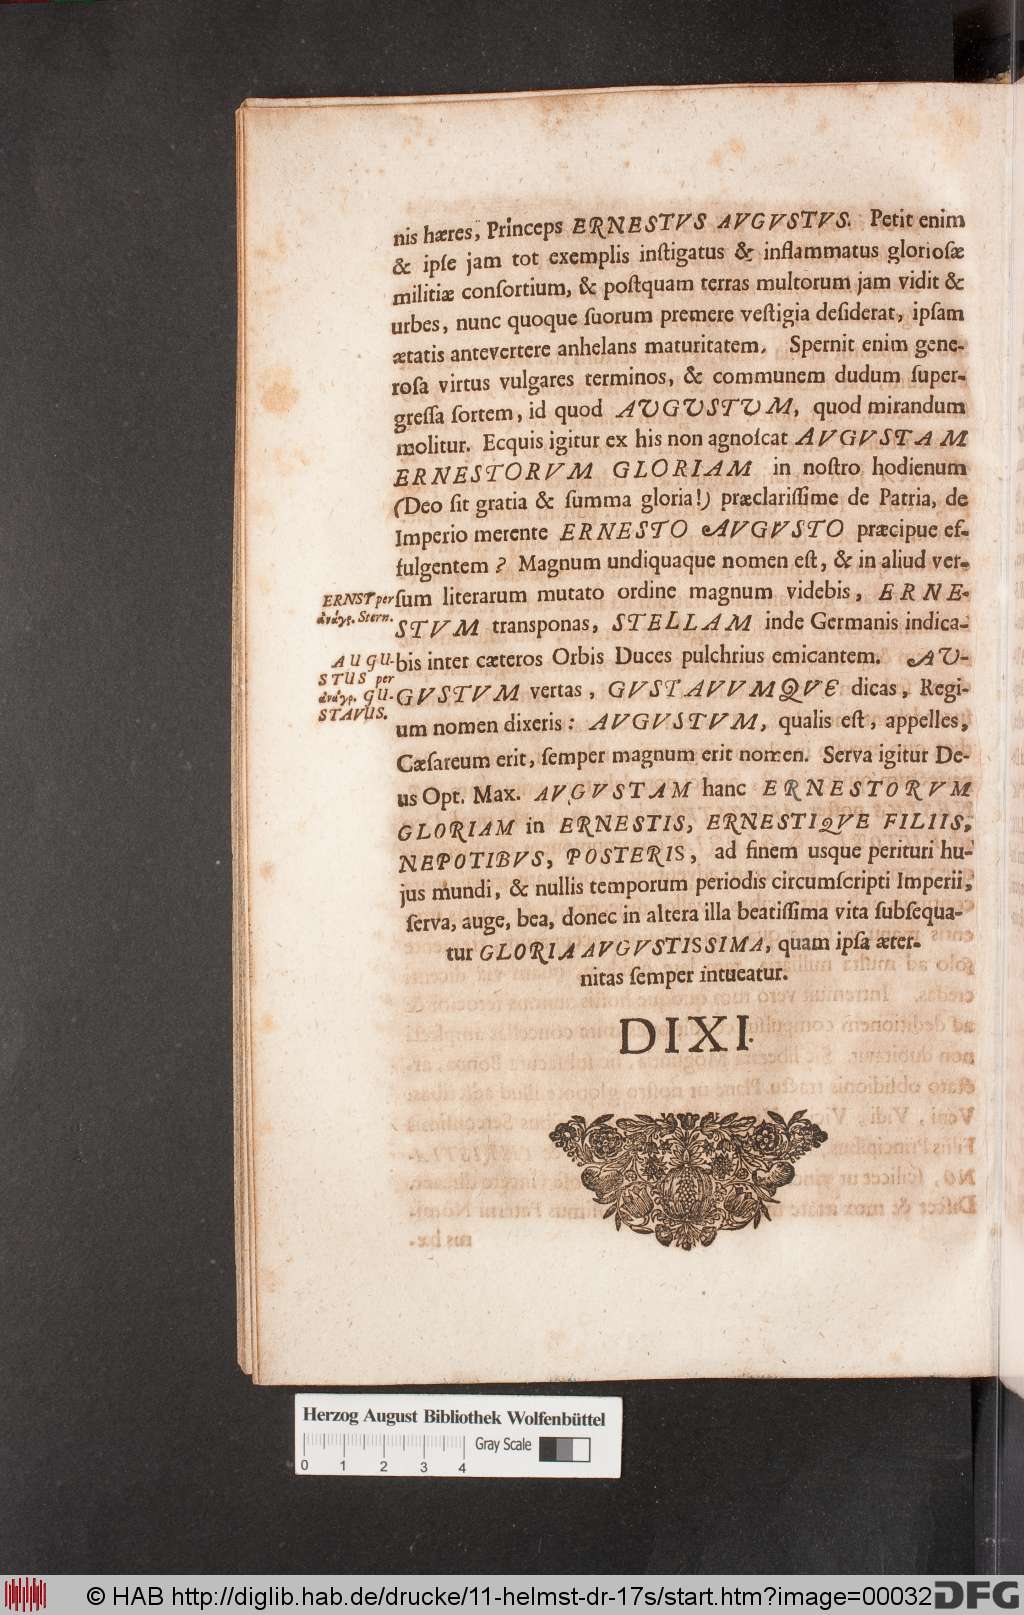 nis hæres, Princeps ERNESTVS AVGVSTVS. Petit enim
& ipſe jam tot exemplis inſtigatus & inflammatus glorioſæ
militiæ conſortium, & poſtquam terras multorum jam vidit &
urbes, nunc quoque ſuorum premere veſtigia deſiderat, ipſam
ætatis antevertere anhelans maturitatem. Spernit enim gene-
roſa virtus vulgares terminos, & communem dudum ſuper-
greſſa ſortem, id quod AUGUSTUM, quod mirandum
molitur. Ecquis igitur ex his non agnoſcat AVGVSTAM
ERNESTORVM GLORIAM in noſtro hodienum
(Deo ſit gratia & ſumma gloria!) præclariſſime de Patria, de
Imperio merente ERNESTO AVGVSTO præcipue ef-
fulgentem? Magnum undiquaque nomen eſt, & in aliud ver-
ſum literarum mutato ordine magnum videbis, ERNE-
STVM transponas, STELLAM inde Germanis indica-
bis inter cæteros Orbis Duces pulchrius emicantem. AU-
GVSTVM vertas, GVSTAVVMQVE dicas, Regi-
um nomen dixeris: AVGVSTVM, qualis eſt, appelles,
Cæſareum erit, ſemper magnum erit nomen. Serva igitur De-
us Opt. Max. AVGVSTAM hanc ERNESTORVM
GLORIAM in ERNESTIS, ERNESTIQVE FILIIS,
NEPOTIBVS, POSTERIS, ad finem usque perituri hu-
jus mundi, & nullis temporum periodis circumſcripti Imperii,
ſerva, auge, bea, donec in altera illa beatiſſima vita ſubſequa-
tur GLORIA AVGVSTISSIMA, quam ipſa æter-
nitas ſemper intueatur.
DIXI.
ERNST per
ἀνάγρ. Stern.
AUGU-
STUS per
ἀνάγρ. GU-
STAVUS.
Herzog August Bibliothek Wolfenbüttel
Gray Scale
0 1 2 3 4
© HAB http://diglib.hab.de/drucke/11-helmst-dr-17s/start.htm?image=00032
DFG